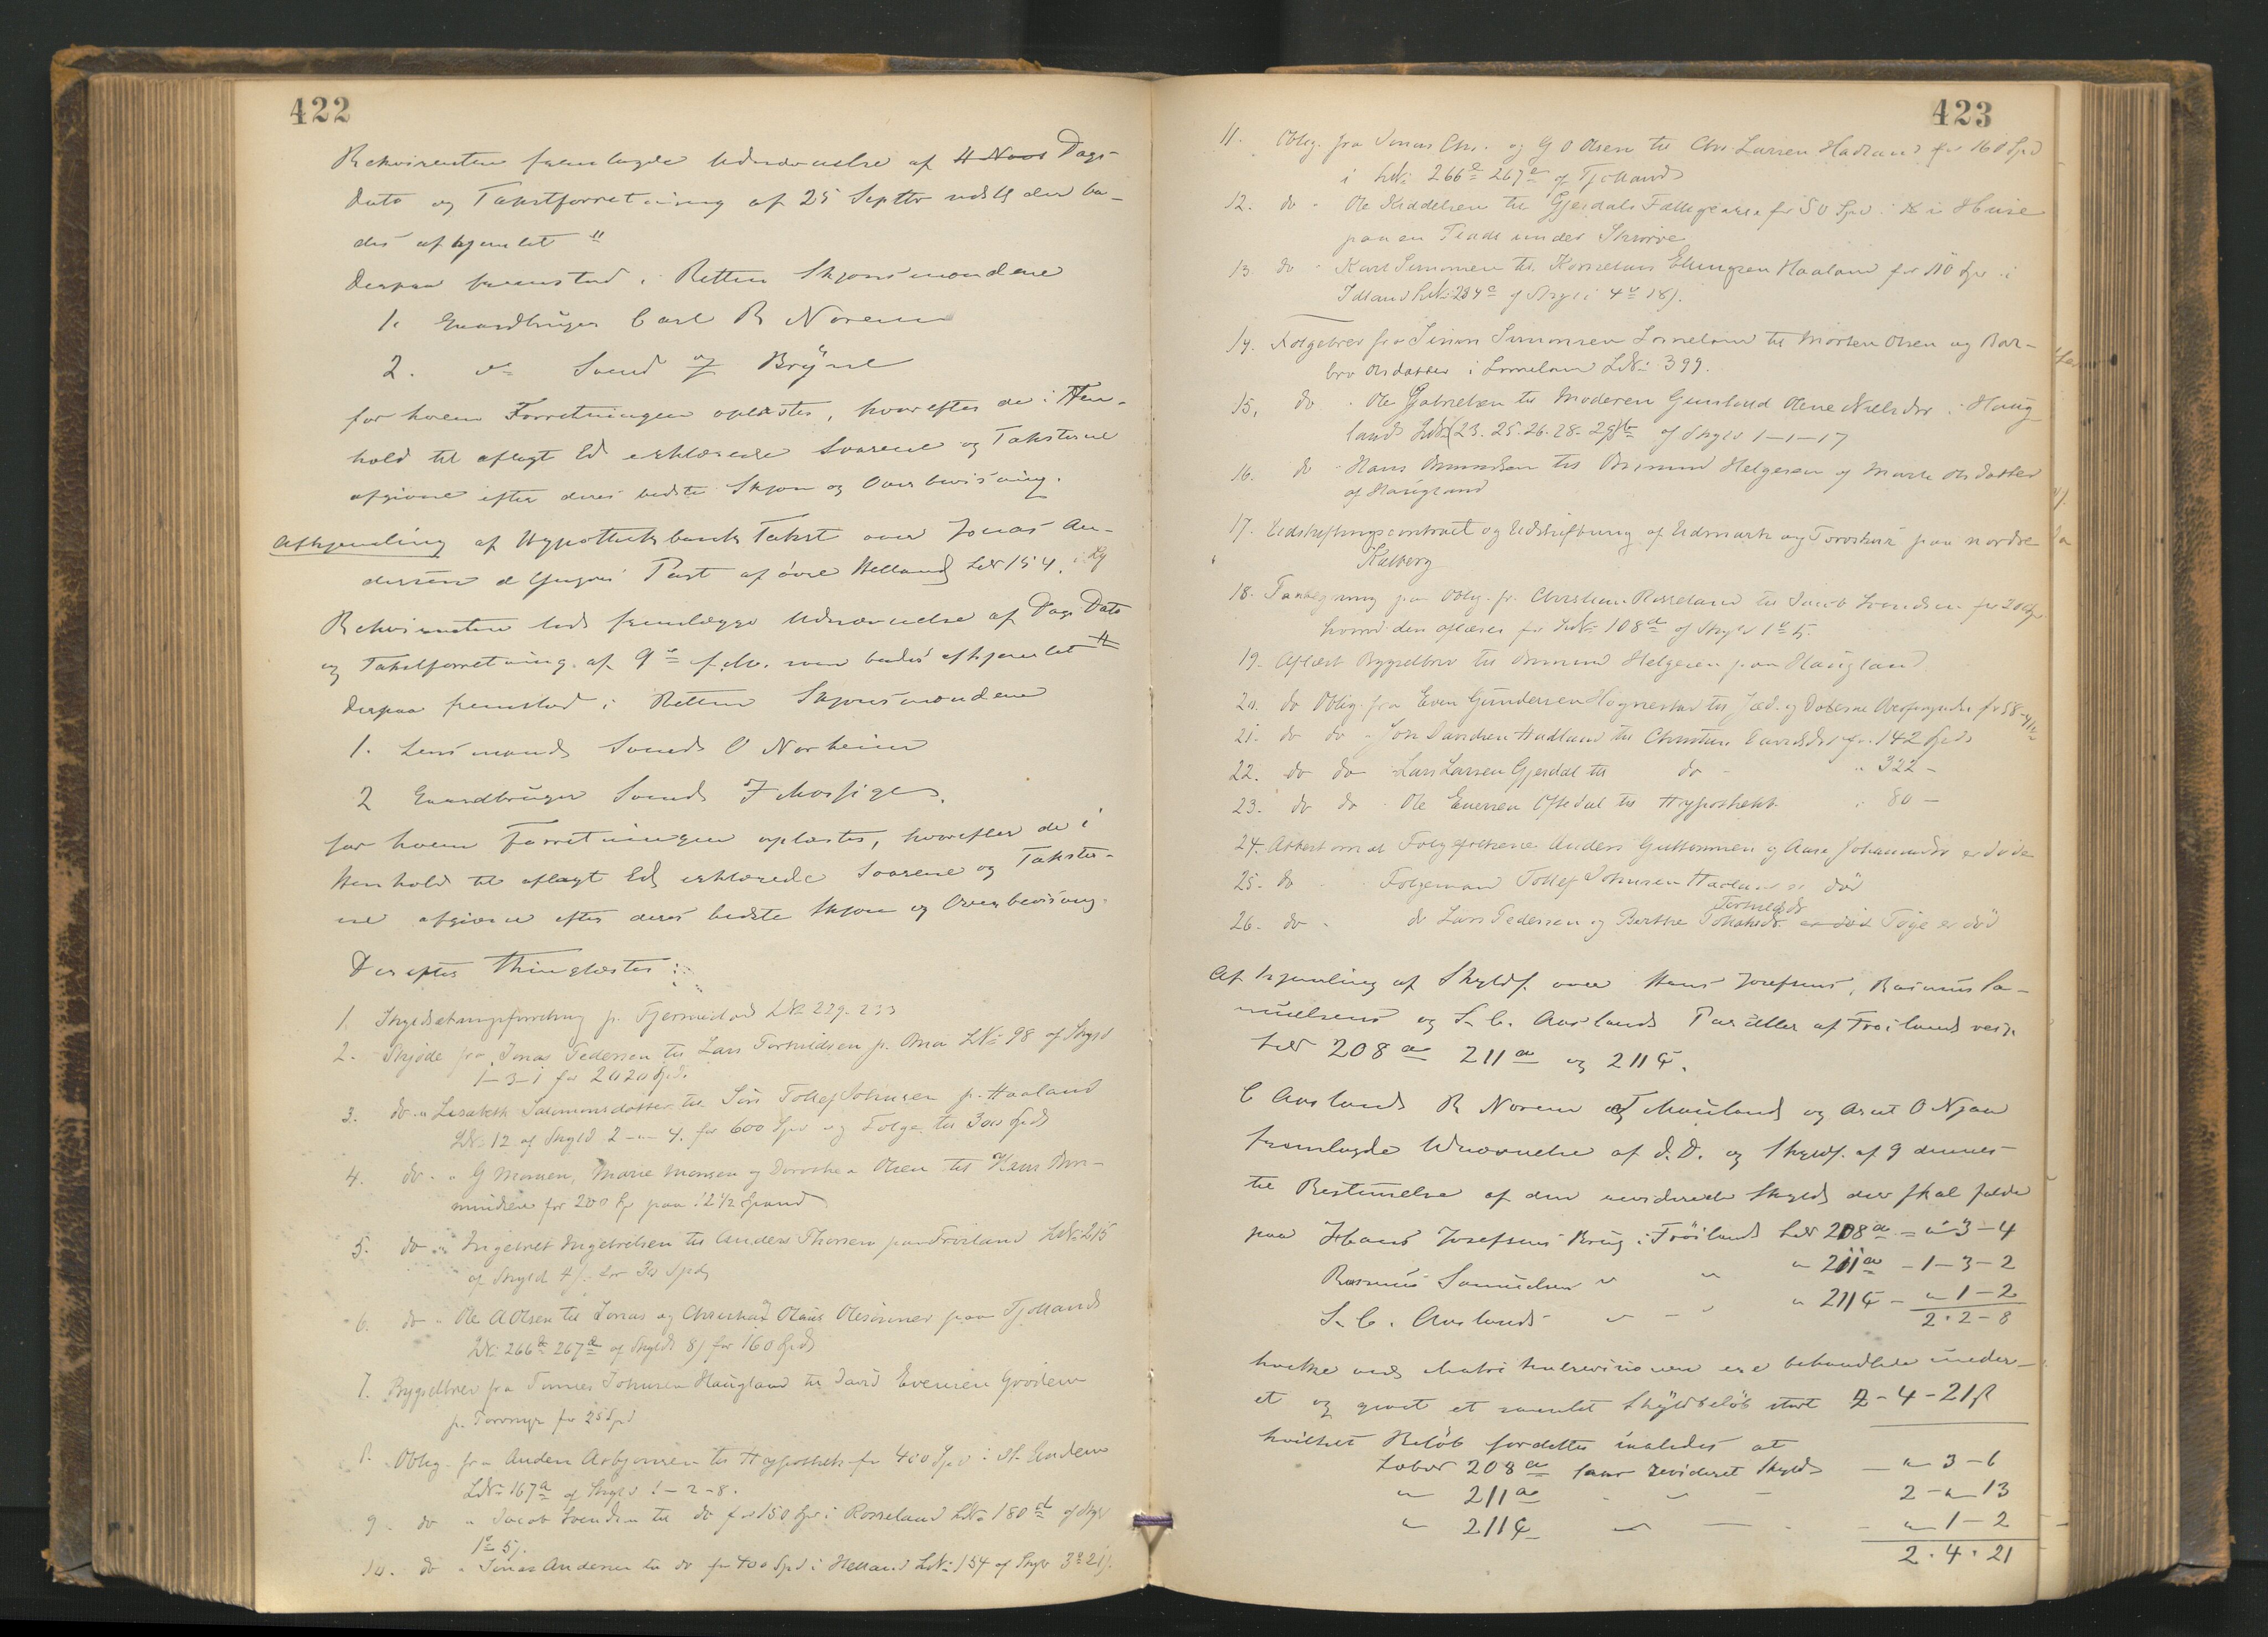 422
Rekvirenten fremlagde Udnævnelse af 4 Novr Dags
Dato og Takstforretning af 25 Septbr sidstl der be-
des afhjemlet "
Derpaa fremstod i Retten Skjønsmændene
1. Gaardbruger Carl R Norem
2. do Svend Bryne
for hvem Forretningen oplæstes, hvorefter de i Hen-
hold til aflagt Ed erklærede Svarene og Taksterne
afgivne efter deres bedste Skjøn og Overbevisning.
Afhjemling af Hypothekbanks Takst over Jonas An-
dersens Part af øvre Helland LNr 154.
Rekvirenten lod fremlægge Udnævnelse af Dags Dato
og Takstforretning af 9de f.M. som bedes afhjemlet
Derpaa fremstod i Retten Skjønsmændene
1. Lensmand Svend O Norheim
2 Gaardbruger Svend Mossige
for hvem Forretningen oplæstes, hvorefter de i
Henhold til aflagt Ed erklærede Svarene og Takster-
ne afgivne efter deres bedste Skjøn og Overbevisning.
Derefter thinglæstes:
1. Skyldsætningsforretning p. Tjermestad LNr 229. 233
2. Skjøde fra Jonas Pedersen til Lars Torkildsen p. Oma LNr 98 af Skyld
1-3-1 for 2020 Spd.
3. do " Lisabeth Salomonsdatter til Tollef Johnsen p. Haaland
LNr 12 af Skyld 2-"-4. for 600 Spd og Folge til 300 Spd
4. do " G Monsen, Marie Monsen og Dorothea Olsen til Hans Om-
mundsen for 200 Sp paa 12 1/2 Spand
5. do " Ingebret Ingebretsen til Anders Thorsen paa Frøiland LNr 215
af Skyld 4 for 30 Spd
6. do " Ole A Olsen til Jonas og Christian Olaus Olesønner paa Tjolland
LNr 266a 267a af Skyld 8 for 160 Spd
7. Bygselbrev fra Tønnes Johnsen Haugland til David Evensen
p. Torvmyr for 25 Spd
8. Oblig. fra Anders Asbjørnsen til Hypothek for 400 Spd i
LNr 167a af Skyld 1-2-8.
9. do " Jacob Svendsen til do for 150 Spd i Rosseland LNr 180 af Skyld
1 5.
10. do " Jonas Andersen til do for 400 Spd i Helland LNr 154 af Skyld 3 21.
423
11. Oblig. fra Jonas Chr. og G O Olsen til Chr. Larsen Hadland for 160 Spd
i LNr 266a 267a af Tjolland
12. do " Ole Kiddelsen til Gjesdals Fattigcasse for 50 Spd i Huse
paa en Plads under Skurve
13. do " Karl Simonsen til Kornelius Ellingsen Haaland for 110 Spd i
LNr 284a af Skyld 4 18.
14. Folgebrev fra Simon Simonsen til Morten Olsen og Bar-
bro Olsdatter i LNr 399.
15. do " Ole Gabrielsen til Moderen Gunlaud Olene Nielsdtr i Haug
land LNr (23. 25. 26. 28. 29)b af Skyld 1-1-17
16. do " Hans Ommundsen til Ommund Helgesen og Marte Olsdatter
af Haugland
17. Udskiftningscontract og Udskiftning af Udmark og Torvskur paa nordre
Kalberg
18. Paategning paa Oblig. fr. Christian Rosseland til Jacob Svendsen for 200 Sp
hvorved den aflæses for LNr 108a af Skyld 1 5.
19. Aflæst Bygselbrev til Ommund Helgesen paa Haugland
20. do Oblig. fra Even Gundersen Hognestad til Jæd. og Dalerne Overformynderi for 58
21. do do " Jon Davidsen Hadland til Christine Davidsdtr for 142 Spd
22. do do Lars Larsen Gjesdal til do " 322 -
23. do do Ole Enersen Oftedal til Hypothek " 80 -
24. Attest om at Folgefolkene Anders Guttormsen og Aase Johannesdtr er døde
25. do Folgemand Tollef Johnsen Haaland er død
26. do do Lars Pedersen og Berthe Torkildsdtr er død Foge er død
Afhjemling af Skyldf. over Hans Josefsens, Rasmus Sa-
muelsens og S. C. Auslands Parceller af Frøiland resp.
LNr 208a 211a og 211c.
C Ausland R Norem og Mauland og Aret O Njaa
fremlagde Udnævnelse af D.D. og Skyldf. af 9 dennes
til Bestemmelse af den reviderede Skyld der skal falde
paa Hans Josefsens Brug i Frøiland LNr 208a = "-3-4
Rasmus Samuelsen " " " 211a - 1-3-2
S. C. Ausland " - " " 211c - "-1-2
2-2-8
hvilke ved Matrikulrevisionen ere behandlede under-
et og givet et samlet Skyldbeløb stort 2-4-21
hvilket Beløb fordeltes saaledes at
Løbnr 208a faar revideret Skyld - "-3-6
" 211a - " - 2-"-13
" 211c - " - "-1-2
2.4.21